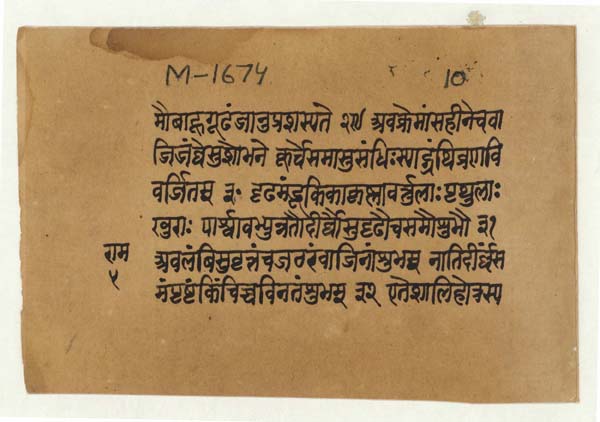 M-1674
10
मौबाहूगूढंजानुप्रशस्यते २९ अवक्रेमांसहीनेचवा
जिजंघेसुशोभने कूर्चंसमासुसंधिःस्याद्ग्रंथिव्रणवि
वर्जितम् ३० दृढमंडूकिकाकृष्णावर्त्तुलाः पृथुलाः
खुराः पार्श्वावभ्युन्नतौदीर्घौसुदृढौचसमौशुभौ ३१
राम
५
अवलंबिसुवृत्तंचजठरंवाजिनांशुभम् नातिदीर्घंस
मंपृष्टंकिंचिच्चविनतंशुभम् ३२ एतेशालिहोत्रस्य